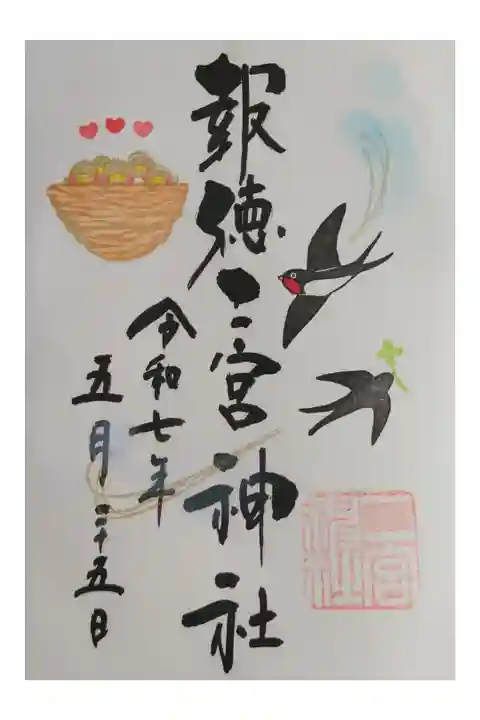 報徳二宮神社
令和七年
五月二十五日
二宮
神社